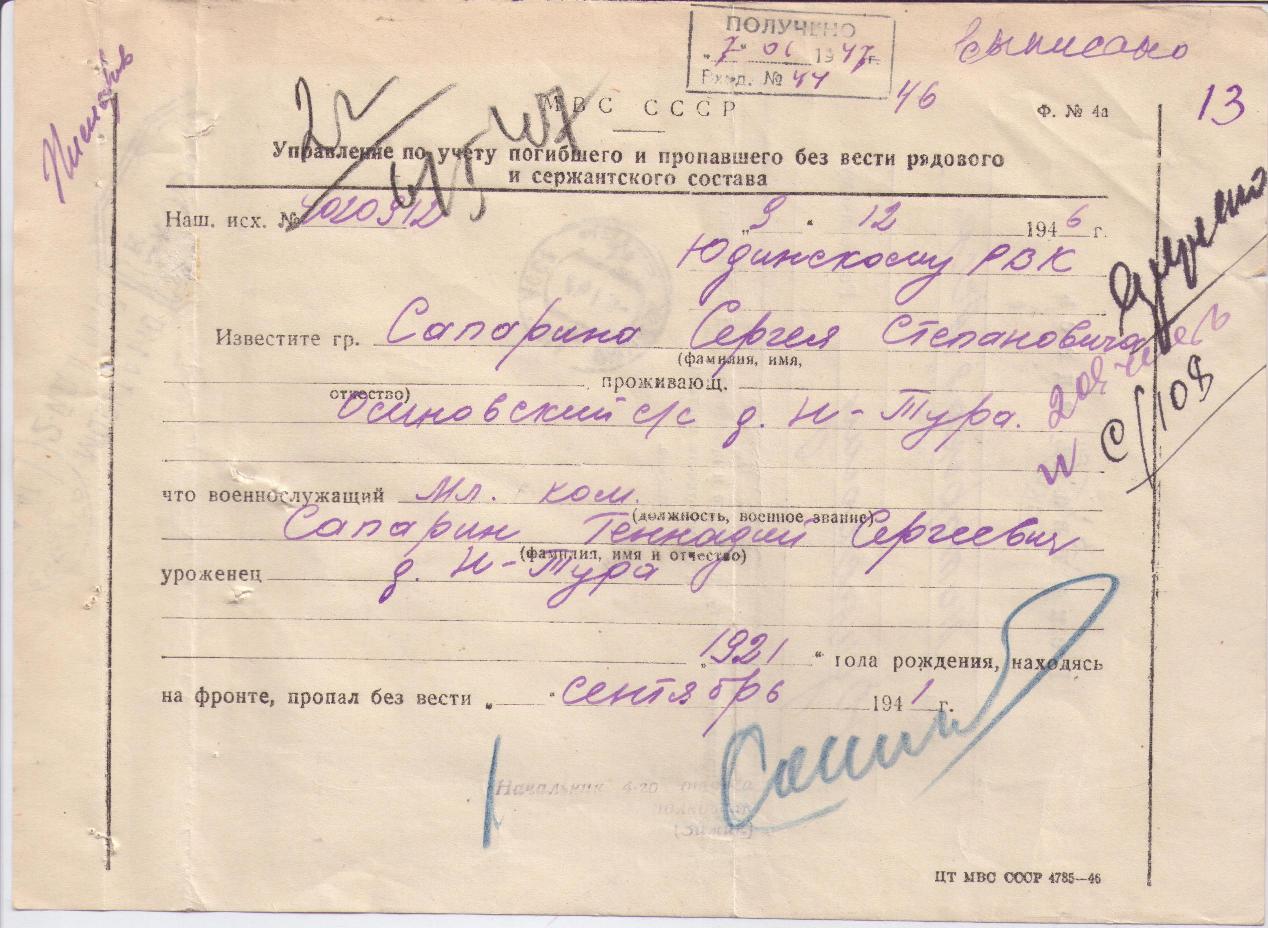 ПОЛУЧЕНО
"7" 01 1947 г.
Вход. № 44
выписано
46
13
МВС СССР
Ф. № 4а
Управление по учету погибшего и пропавшего без вести рядового
и сержантского состава
Наш. исх. № 1020912
„9" 12 1946 г.
Юдинскому РВК
Известите гр. Сапарина Сергея Степановича
(фамилия, имя,
отчество)
проживающ.
Осиновский с/с д. Н-Тура.
что военнослужащий Мл. ком.
(должность, военное звание)
Сапарин Геннадий Сергеевич
(фамилия, имя и отчество)
уроженец д. Н-Тура
„1921" года рождения, находясь
на фронте, пропал без вести „ " сентябрь 1941 г.
Начальник 4-го отдела
с/108
ЦТ МВС СССР 4785—46